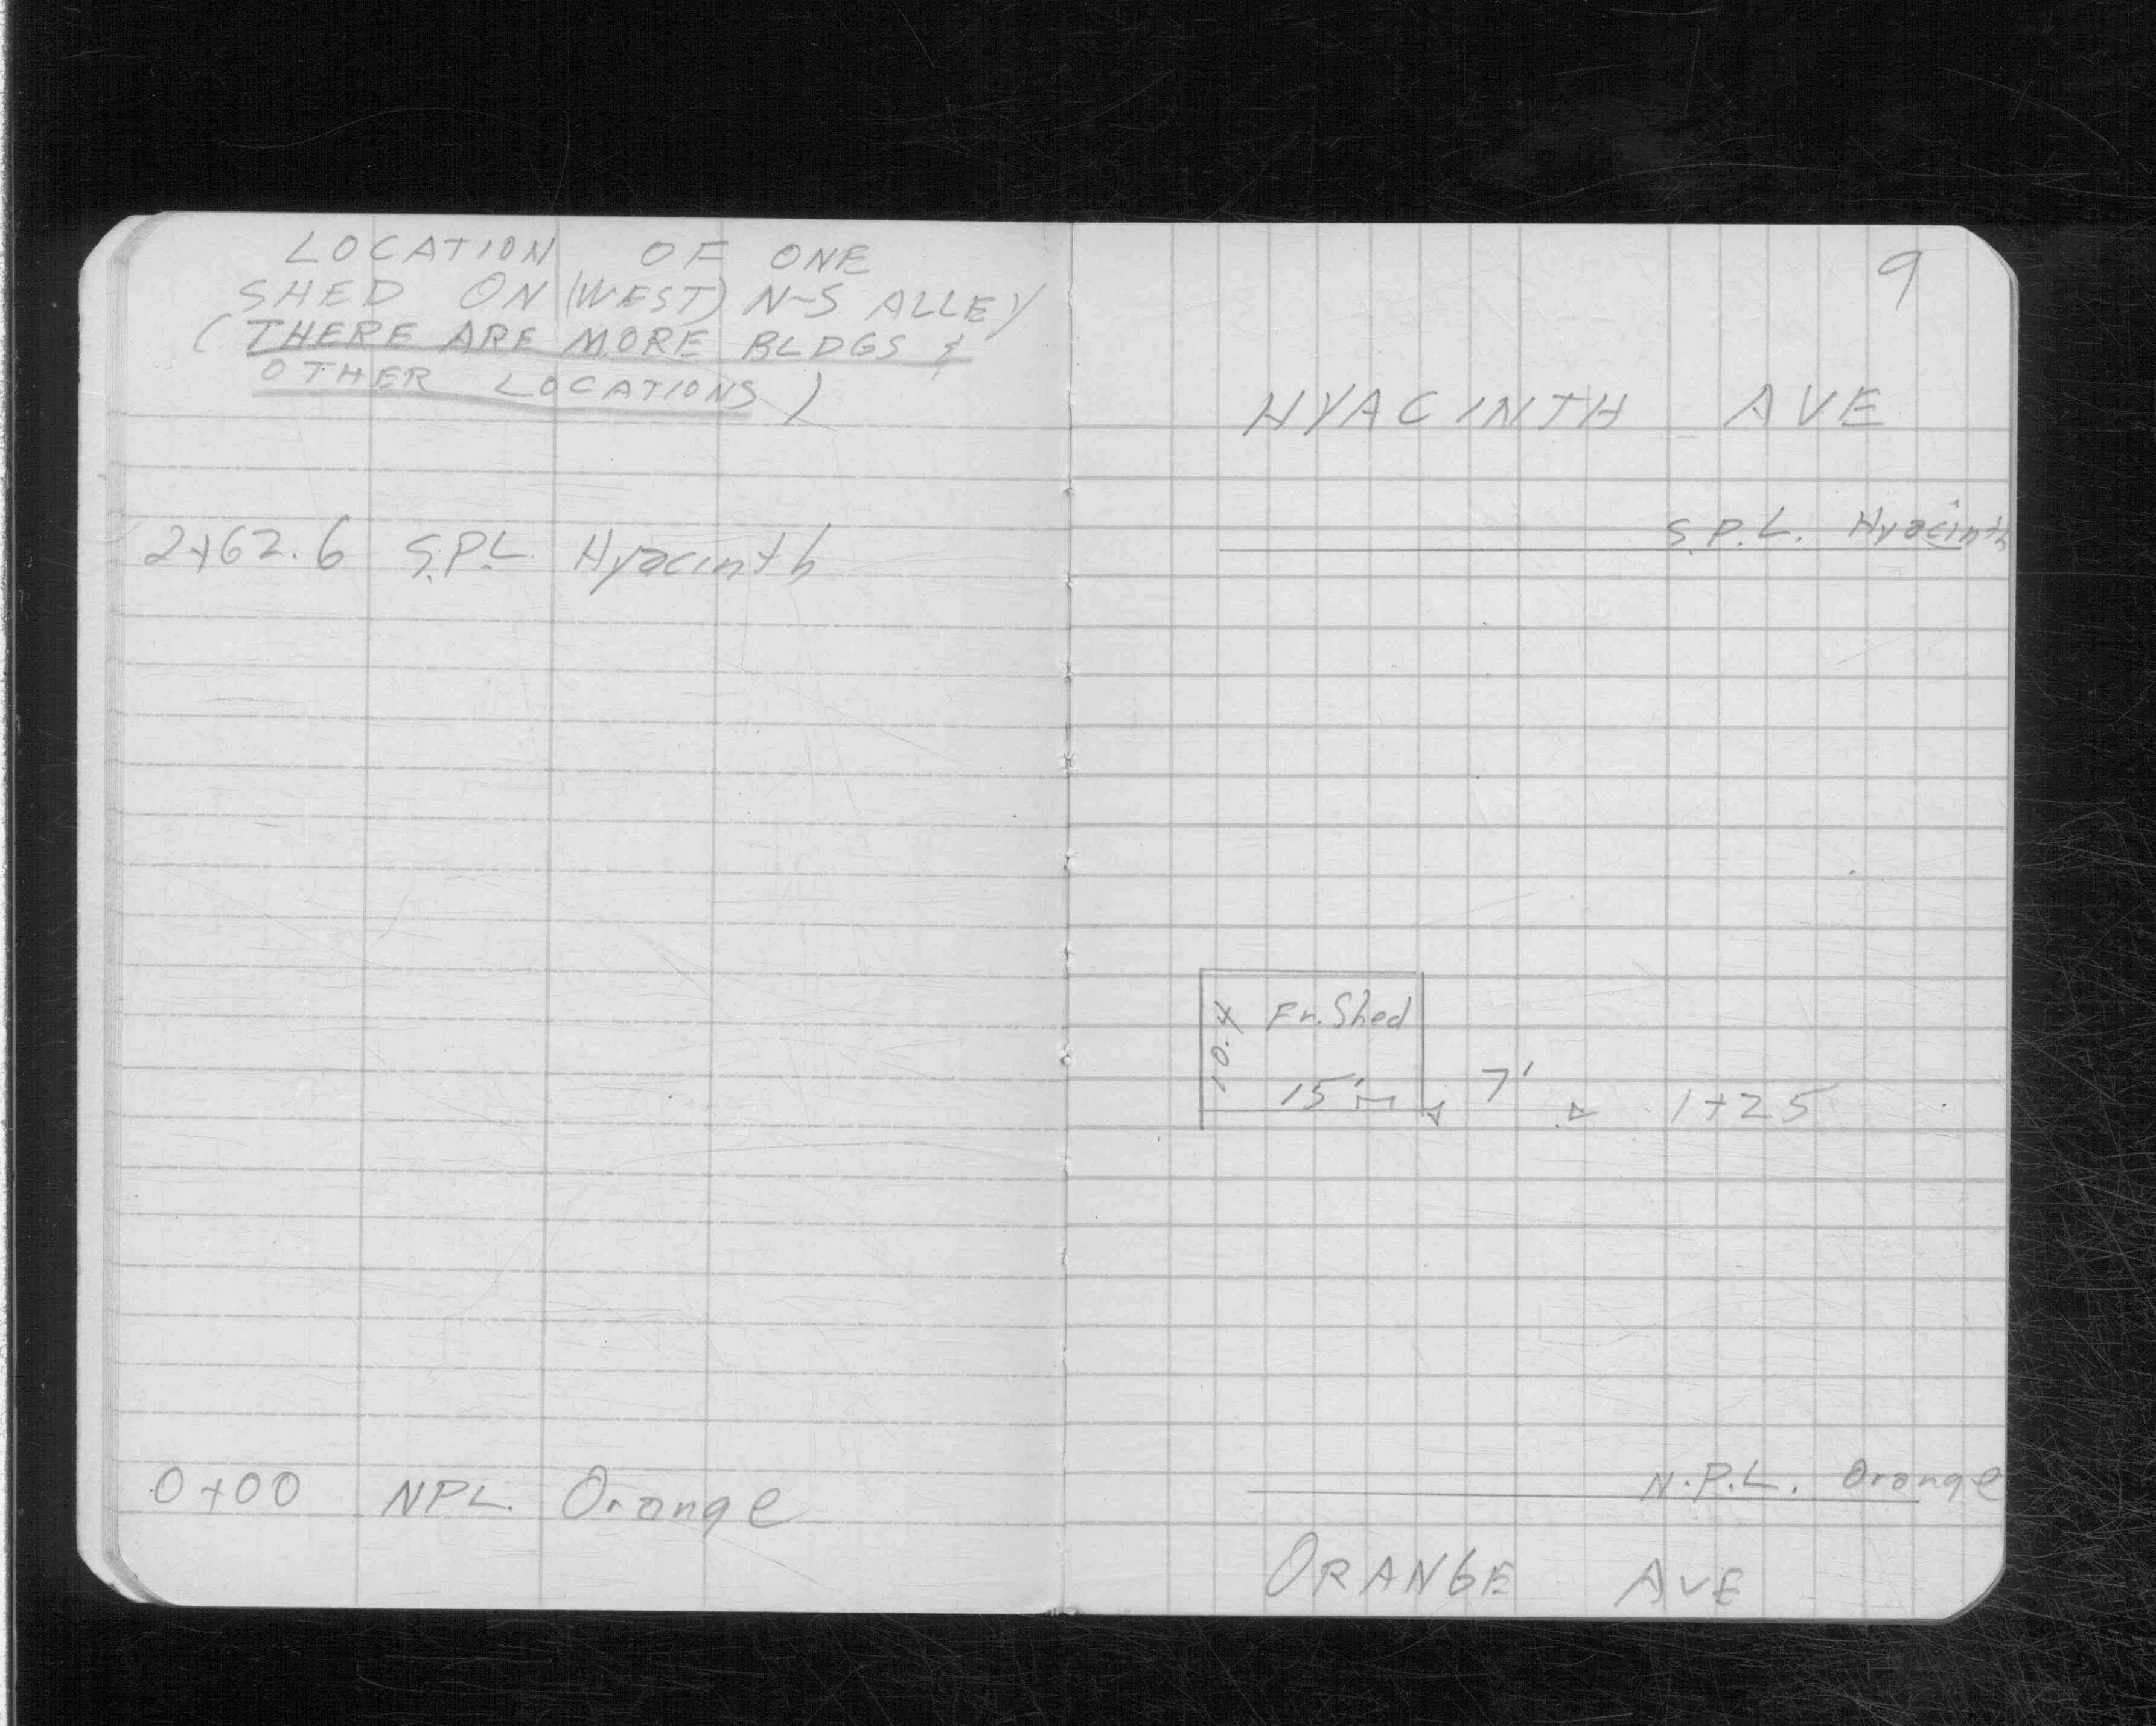 LOCATION OF ONE
SHED ON (WEST) N-S ALLEY
(THERE ARE MORE BLDGS &
OTHER LOCATIONS)
2+62.6 S.P.L. Hyacinth
0+00 NPL. Orange
9
HYACINTH AVE
S.P.L. Hyacinth
10.4
Fr. Shed
15'
7'
1+25
N.P.L. Orange
ORANGE AVE